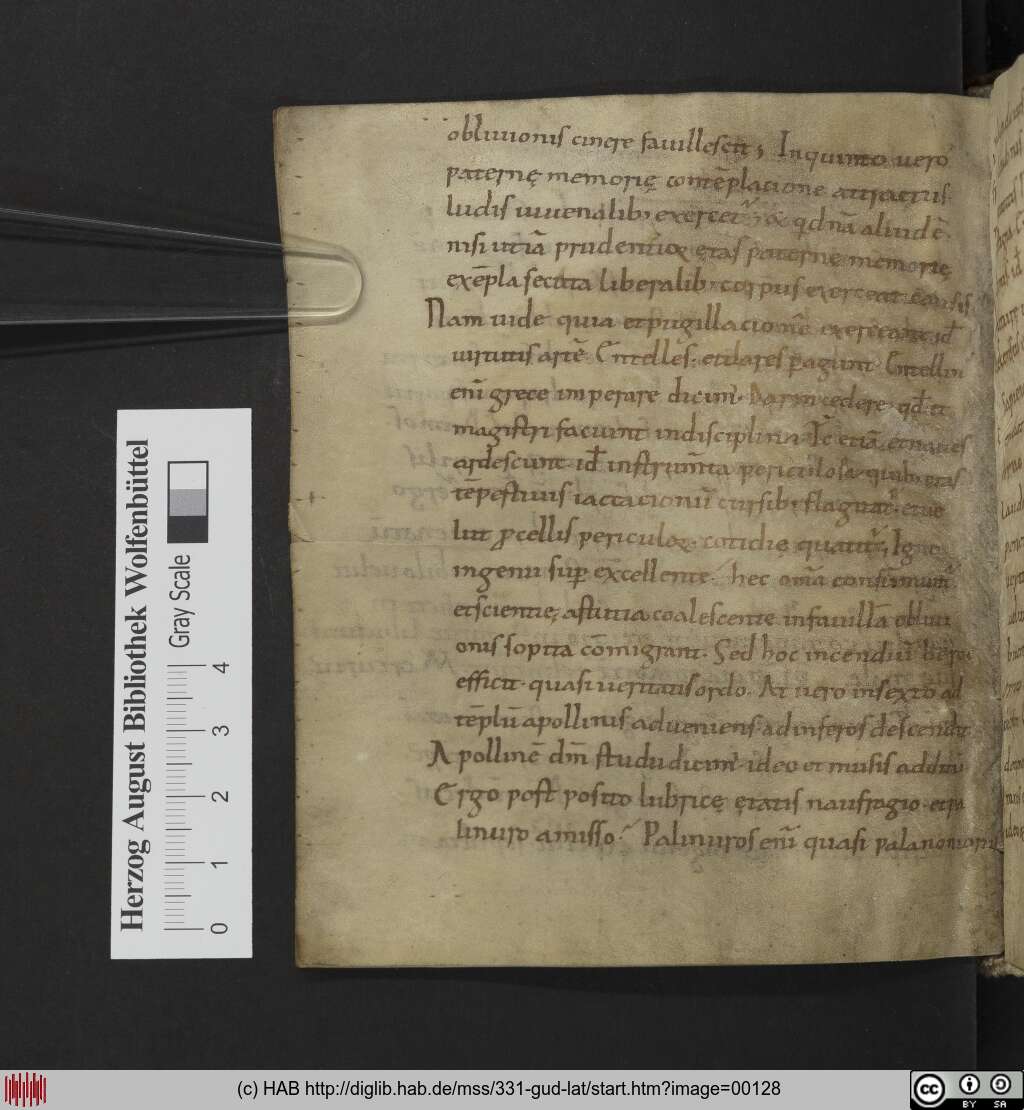 obliuionis cinere fauillescit; In quinto uero
paternę memorię contēplatione attractus
ludis iuuenalib; exercet᷑ & qd nā aliud ē
nisi ut iā prudentior ętas paternę memorię
exēpla secuta liberalib; corpus exerceat causis
Nam uide quia et pugillacionē exercant id
uirtutis artē Entellꝰ. et dares pagunt. Entellin
enī grece imperare dicim᷒. Darin cedere qđ et
magistri faciunt in disciplina. Tē etiā et naues
ardescunt. id instrum̄ta periculosa quib; ętas
tēpestiuis iactationū cursib; flagrat. et ue
lut ꝓcellis periculoꝝ. cotidię quatit᷑; Igne
ingenii suꝑ excellente hec om̄a consumunt᷑
et scientię astutia coalescente in fauillā obliui
onis sopita cōmigrant. Sed hoc incendiū beroe
efficit. quasi ueritatis ordo. At uero in sexto ad
tēplū apollinis adueniens ad inferos descendit
Apollinē dm̄ studii dicim᷒ ideo et musis additū
Ergo post posito lubricę ętatis naufragio. et pa
linuro amisso. Palinuros enī quasi palanonorus
Herzog August Bibliothek Wolfenbüttel
Gray Scale
0 1 2 3 4
(c) HAB http://diglib.hab.de/mss/331-gud-lat/start.htm?image=00128
cc BY SA